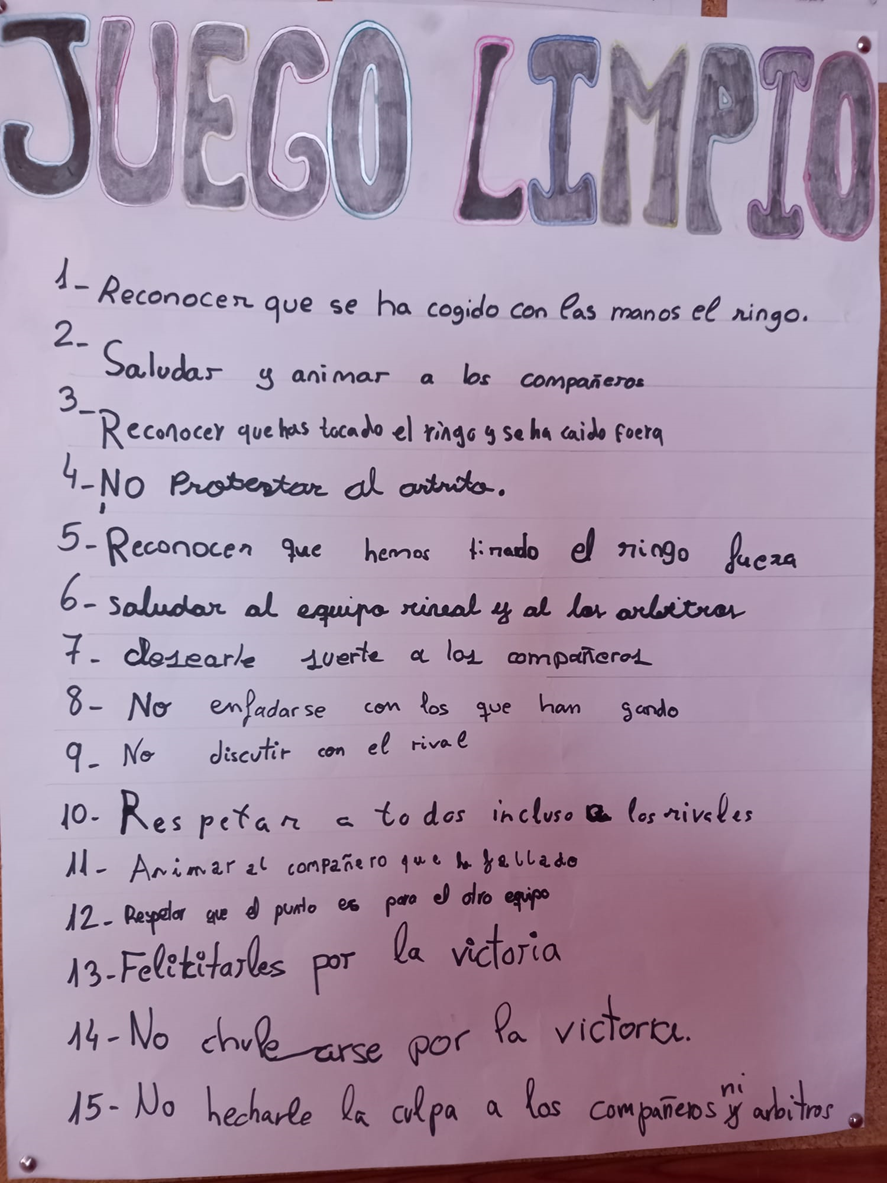 JUEGO LIMPIO
1- Reconocer que se ha cogido con las manos el ringo.
2- Saludar y animar a los compañeros
3- Reconocer que has tocado el ringo y se ha caido fuera
4- NO Protestar al artrito.
5- Reconocer que hemos tirado el ringo fuera
6- saludar al equipo rineal y al los arbitros
7- desearle suerte a los compañeros
8- No enfadarse con los que han gando
9- No discutir con el rival
10- Respetar a todos incluso a los rivales
11- Animar al compañero que ha fallado
12- Respetar que el punto es para el otro equipo
13- Felititarles por la victoria
14- No chulearse por la victoria.
15- No hecharle la culpa a los compañeros ni y arbitros